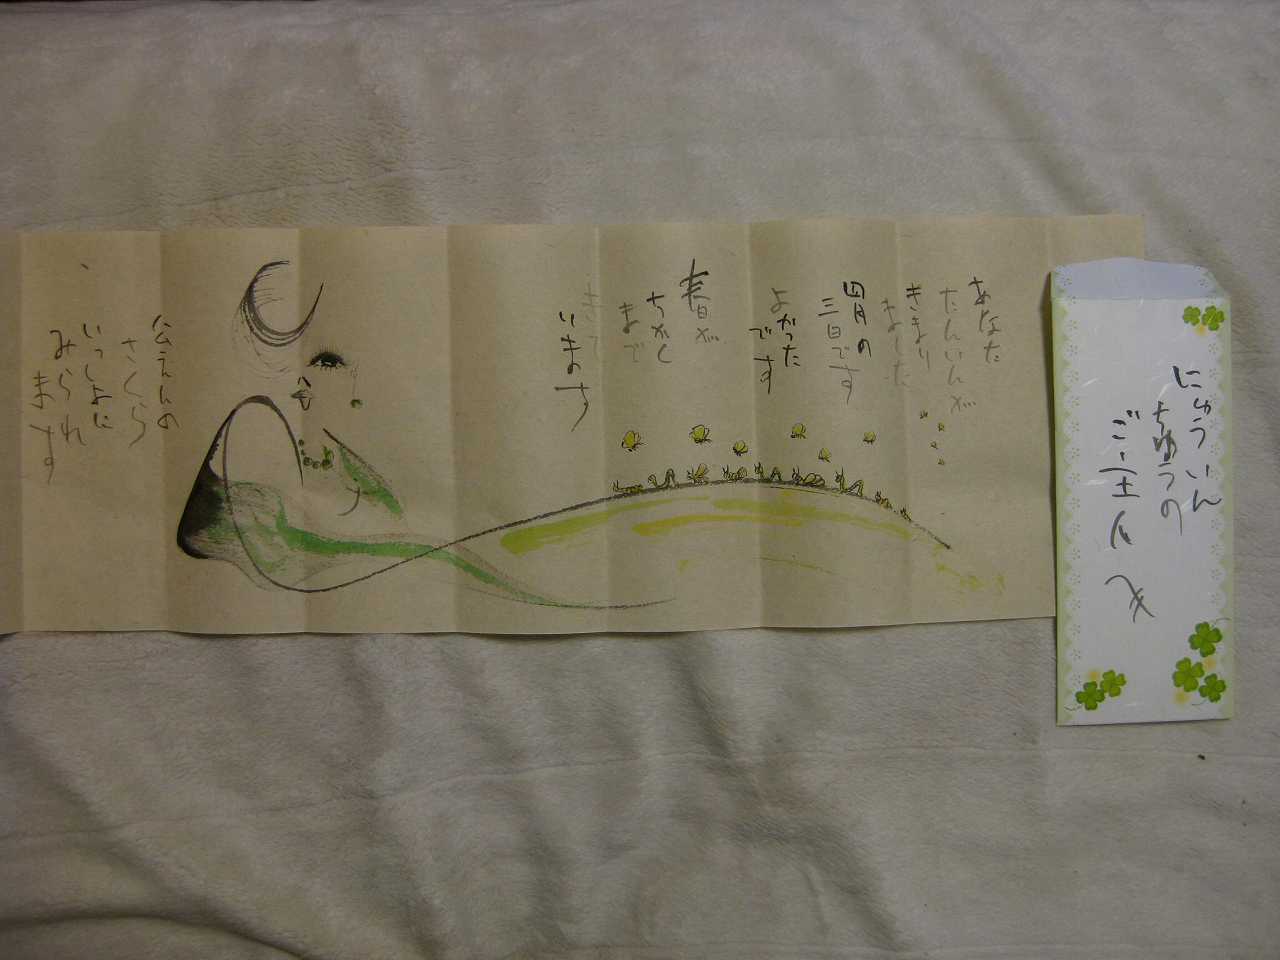 にゅういん
ちゅうの
ご主人へ
あなた
たいいんが
きまり
ました
四月の
三日です
よかった
です
春が
ちかく
まで
きて
います
公えんの
さくら
いっしょに
みられ
ます